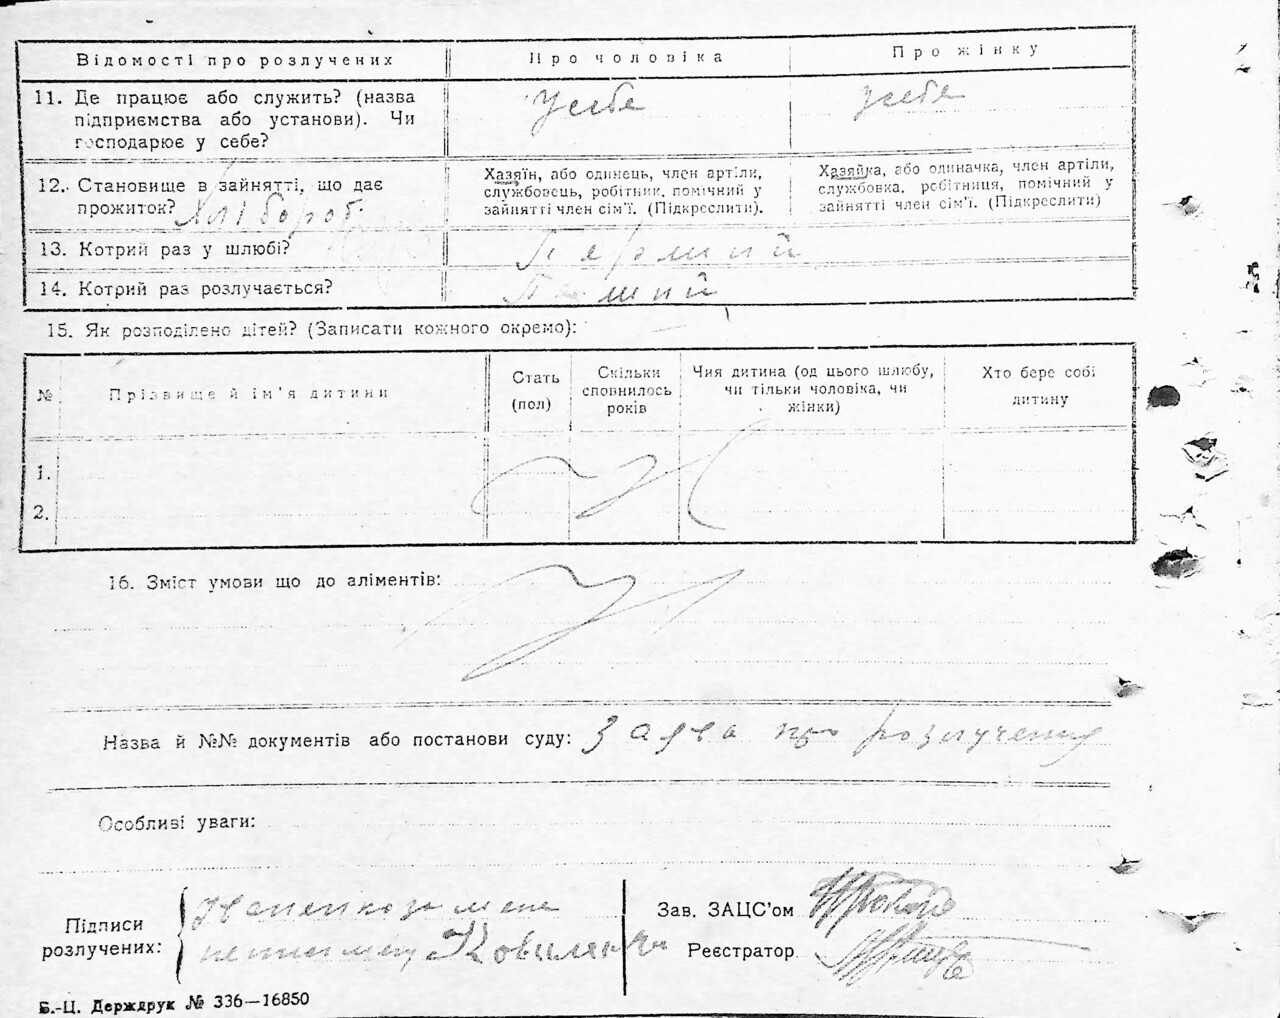 Відомості про розлучених Про чоловіка Про жінку
11. Де працює або служить? (назва підприємства або установи). Чи господарює у себе?
У себе
У себе
12. Становище в зайнятті, що дає прожиток? Хлібороб.
Хазяїн, або одинець, член артіли,
службовець, робітник, помічний у
зайнятті член сім'ї. (Підкреслити).
Хазяйка, або одиначка, член артіли,
службовка, робітниця, помічний у
зайнятті член сім'ї. (Підкреслити)
13. Котрий раз у шлюбі? Первший
14. Котрий раз розлучається?
15. Як розподілено дітей? (Записати кожного окремо):
№ Прізвище й ім'я дитини
Стать
(пол)
Скільки
сповнилось
років
Чия дитина (од цього шлюбу,
чи тільки чоловіка, чи
жінки)
Хто бере собі
дитину
1.
2.
16. Зміст умови що до аліментів:
Назва й №№ документів або постанови суду: Заява про розлучения
Особливі уваги:
Підписи
розлучених:
Зав. ЗАЦС'ом
Реєстратор
Б.-Ц. Держдрук № 336—16850